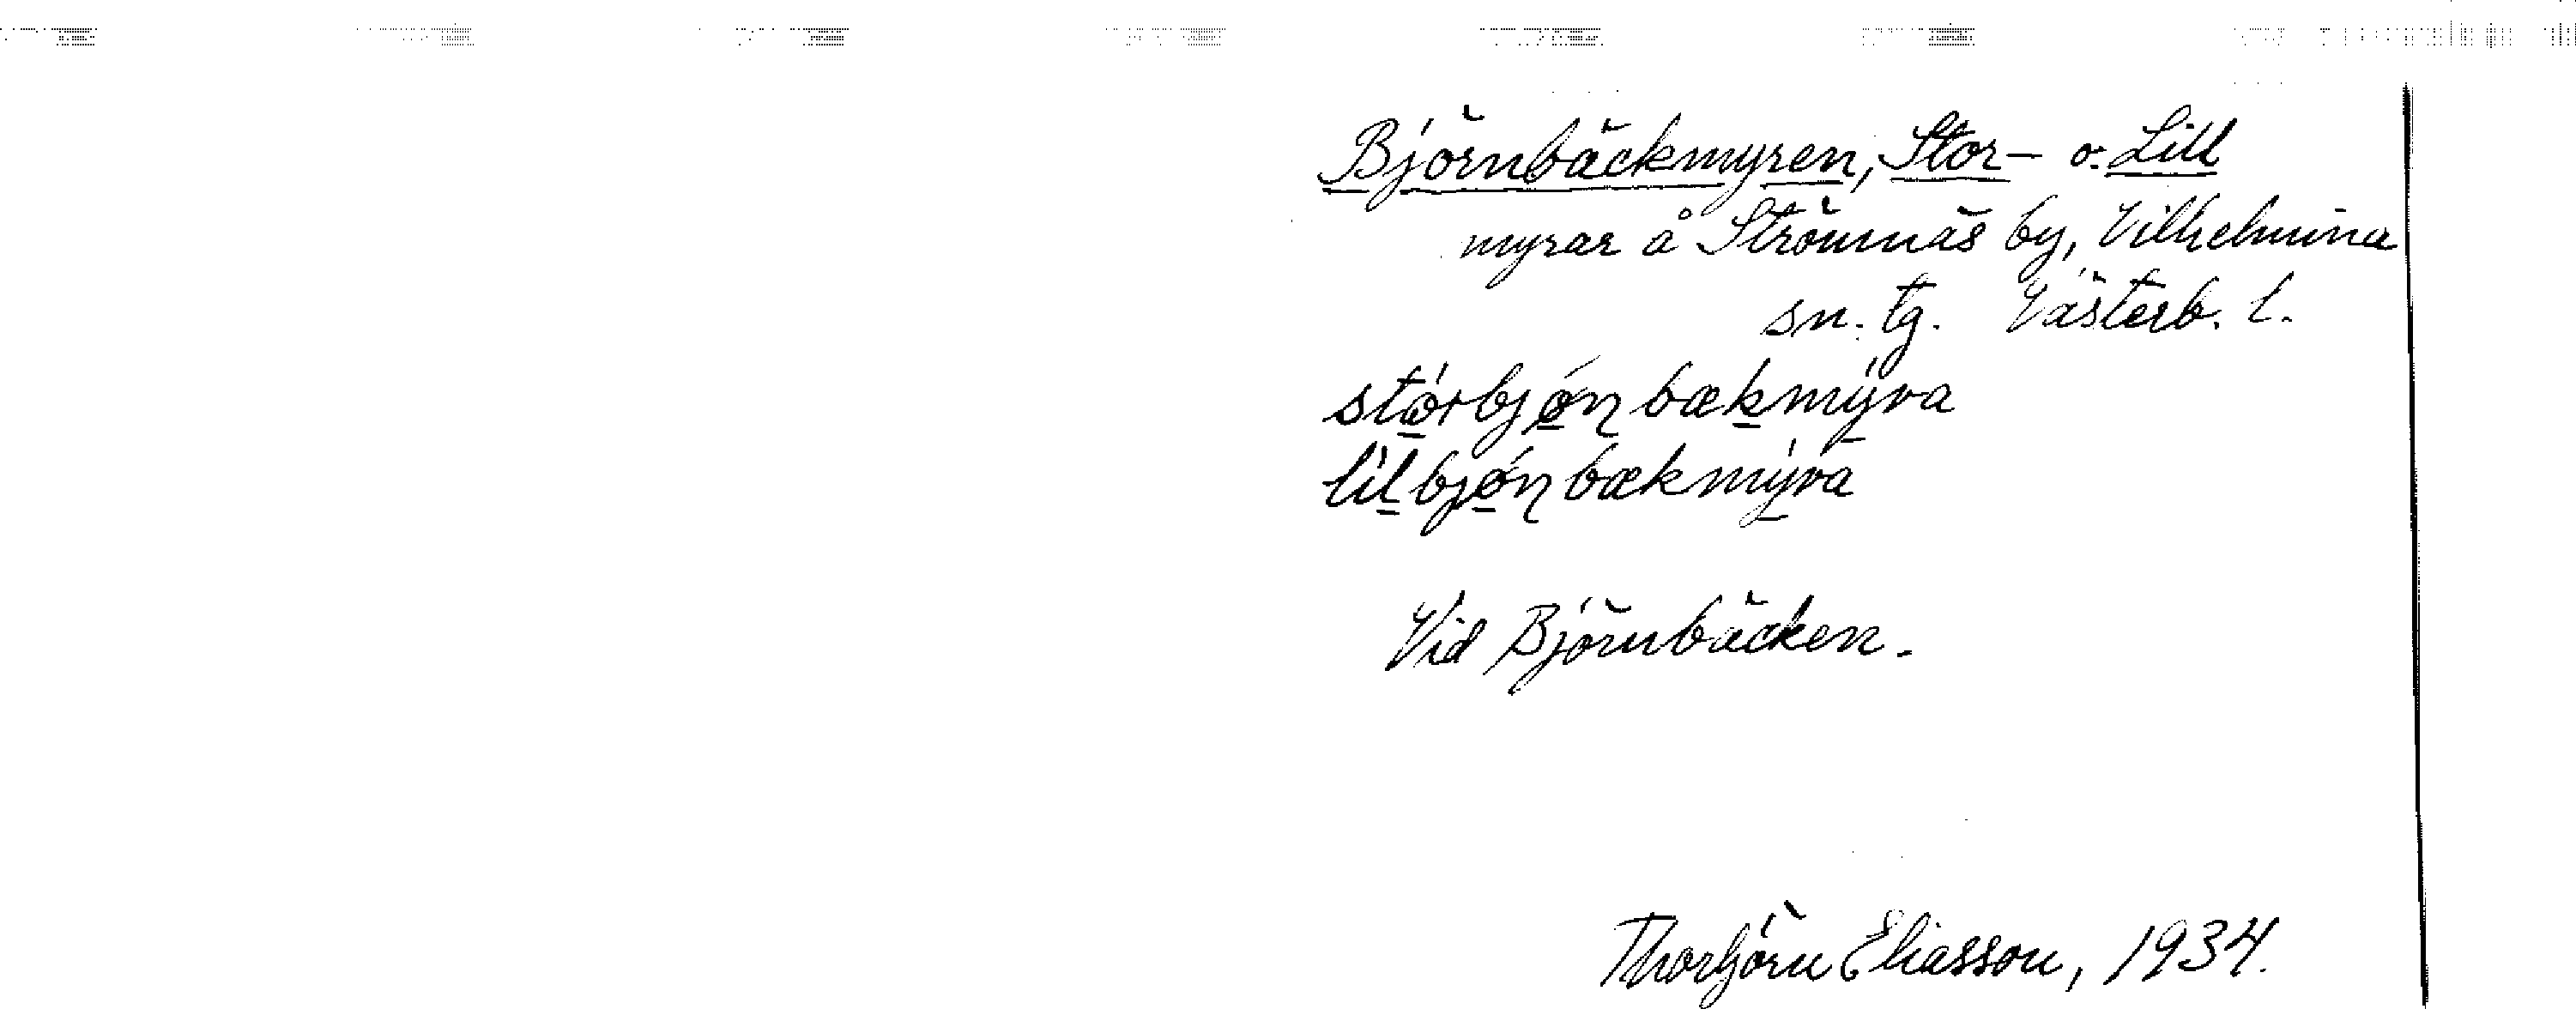 Björnbäckmyren, Stor- o. Lill
myrar å Strömnäs by, Vilhelmina
sn. tg. Västerb. l.
stórbjǿɳbækmýra
lílbjǿɳbækmýra
Vid Björnbäcken.
Thorbjörn Eliasson, 1934.